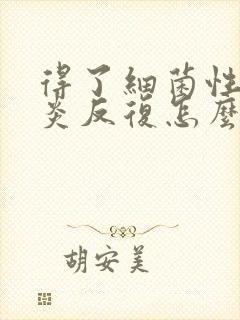 得了細菌性
炎反復怎麼
胡安美